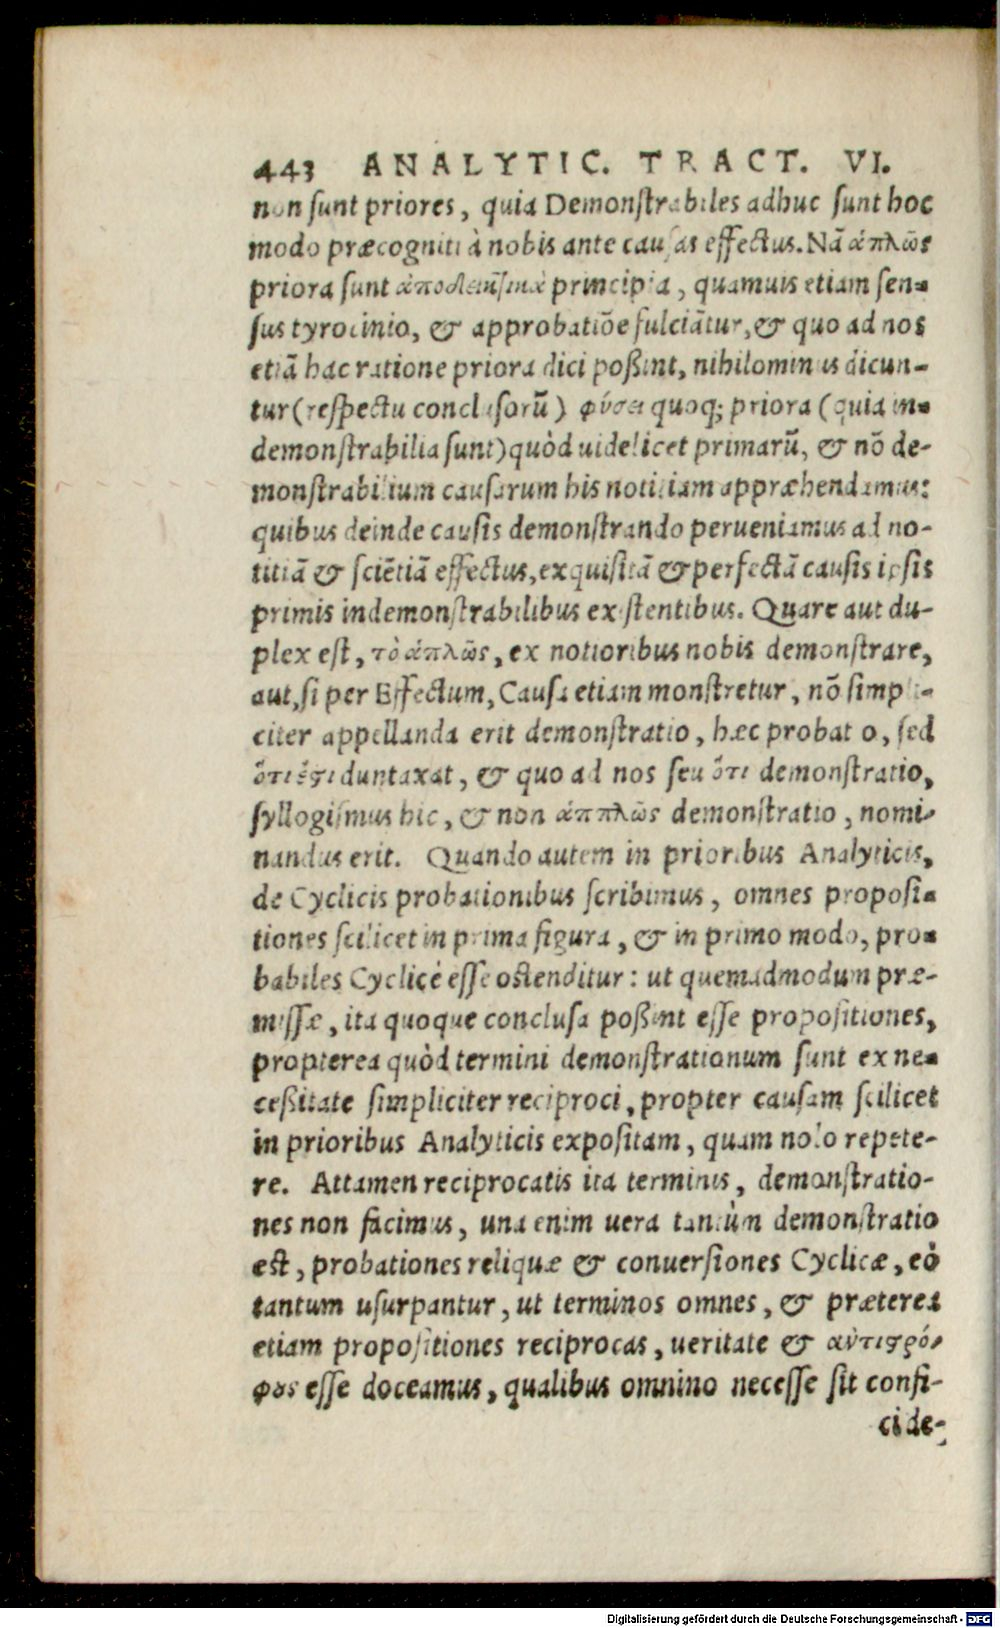 443 ANALYTIC. TRACT. VI.
non ſunt priores, quia Demonſtrabiles adhuc ſunt hoc
modo præcogniti à nobis ante cauſas effectus. Nã ἁπλῶς
priora ſunt principia, quamuis etiam ſen-
ſus tyrocinio, & approbatiõe fulciãtur, & quo ad nos
etiã hac ratione priora dici poßint, nihilominus dicun-
tur (reſpectu concluſorũ) φύσει quoq; priora (quia in-
demonſtrabilia ſunt) quòd uidelicet primarũ, & nõ de-
monſtrabilium cauſarum his notitiam appræhendamus:
quibus deinde cauſis demonſtrando perueniamus ad no-
titiã & ſciẽtiã effectus, exquiſitã & perfectã cauſis ipſis
primis indemonſtrabilibus exiſtentibus. Quare aut du-
plex eſt, τὸ ἁπλῶς, ex notioribus nobis demonſtrare,
aut, ſi per Effectum, Cauſa etiam monſtretur, nõ ſimpli-
citer appellanda erit demonſtratio, hæc probatio, ſed
ὅτι ἔϛι duntaxat, & quo ad nos ſeu ὅτι demonſtratio,
ſyllogiſmus hic, & non ἁππλῶς demonſtratio, nomi-
nandus erit. Quando autem in prioribus Analyticis,
de Cyclicis probationibus ſcribimus, omnes propoſi-
tiones ſcilicet in prima figura, & in primo modo, pro-
babiles Cyclicè eſſe oſtenditur: ut quemadmodum præ-
miſſæ, ita quoque concluſa poßint eſſe propoſitiones,
propterea quòd termini demonſtrationum ſunt ex ne-
ceßitate ſimpliciter reciproci, propter cauſam ſcilicet
in prioribus Analyticis expoſitam, quam nolo repete-
re. Attamen reciprocatis ita terminis, demonſtratio-
nes non facimus, una enim uera tantùm demonſtratio
est, probationes reliquæ & conuerſiones Cyclicæ, eò
tantum uſurpantur, ut terminos omnes, & præterea
etiam propoſitiones reciprocas, ueritate & ἀντιϛρό-
φους eſſe doceamus, qualibus omnino neceſſe ſit confi-
ci de-
Digitalisierung gefördert durch die Deutsche Forschungsgemeinschaft - DFG